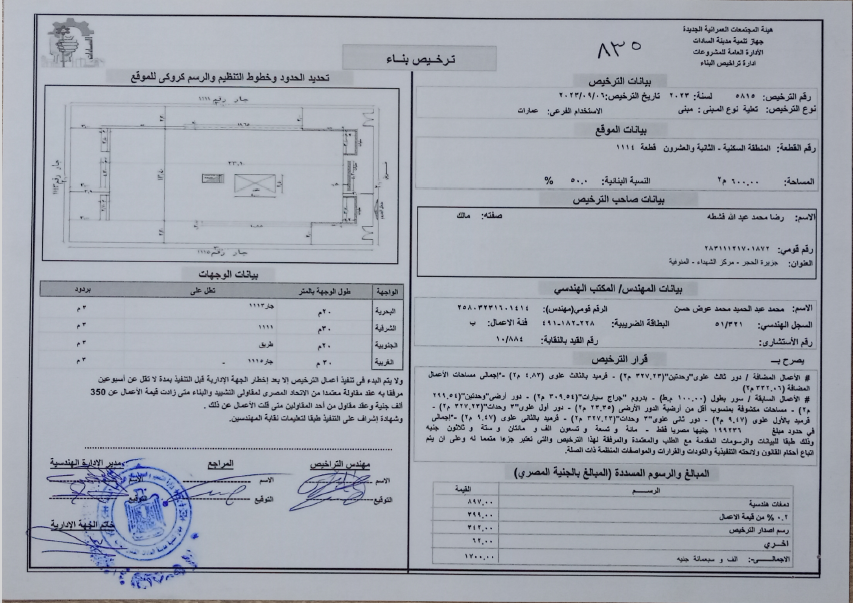 هيئة المجتمعات العمرانية الجديدة
جهاز تنمية مدينة السادات
الأدارة العامة للمشروعات
ادارة تراخيص البناء
٨٣٥
ترخيص بناء
بيانات الترخيص
رقم الترخيص: ٥٨١٥ لسنة: ٢٠٢٣ تاريخ الترخيص: ٢٠٢٣/٠٩/٠٦
نوع الترخيص: تعلية نوع المبنى: مبنى الاستخدام الفرعى: عمارات
بيانات الموقع
رقم القطعة: المنطقة السكنية - الثانية والعشرون قطعة ١١١٤
المساحة: ٦٠٠,٠٠ م٢ النسبة البنائية: ٥٠,٠ %
بيانات صاحب الترخيص
الاسم: رضا محمد عبد الله قشطه صفته: مالك
رقم قومي:
العنوان: جزيرة الحجر - مركز الشهداء - المنوفية
بيانات المهندس/ المكتب الهندسي
الاسم: محمد عبد الحميد محمد عوض حسن الرقم قومي(مهندس): ٢٥٨٠٣٢٣١٦٠١٤١٤
السجل الهندسي: ٥١/٣٢١ البطاقة الضريبية: ٢٢٨-١٨٢-٤٩١ فئة الاعمال: ب
رقم الأستشارى: رقم القيد بالنقابة: ١٠/٨٨٤
قرار الترخيص
يصرح بـ
# الأعمال المضافة / دور ثالث علوى"وحدتين"(٣٢٧,٢٣ م٢) - قرميد بالثالث علوى (٤,٨٣ م٢) -"إجمالى مساحات الأعمال
المضافة (٣٣٢,٠٦ م٢)
# الأعمال السابقة / سور بطول (١٠٠,٠٠ م.ط) - بدروم "جراج سيارات"(٣٠٩,٥٤ م٢) - دور أرضى"وحدتين"(٢٩٩,٥٤
م٢) - مساحات مكشوفة بمنسوب أقل من أرضية الدور الأرضى (٢٣,٣٥ م٢) - دور أول علوى"٣ وحدات"(٣٢٧,٢٣ م٢) -
قرميد بالأول علوى (٩,٤٧ م٢) - دور ثانى علوى"٣ وحدات"(٣٢٧,٢٣ م٢) - قرميد بالثانى علوى (٩,٤٧ م٢)
في حدود مبلغ ١٩٩٢٣٦ جنيها مصريا فقط - مائة و تسعة و تسعون الف و مائتان و ستة و ثلاثون جنيه
وذلك طبقا للبيانات والرسومات المقدمة مع الطلب والمعتمدة والمرفقة لهذا الترخيص والتى تعتبر جزءا متمما له وعلى ان يتم
اتباع أحكام القانون ولائحته التنفيذية والكودات والقرارات والمواصفات المنظمة ذات الصلة.
المبالغ والرسوم المسددة (المبالغ بالجنية المصري)
الرســـم القيمة
دمغات هندسية ٨٩٧,٠٠
٠,٢ % من قيمة الاعمال ٣٩٩,٠٠
رسم اصدار الترخيص ٣٤٢,٠٠
أخري ٦٢,٠٠
الاجمالـــى: الف و سبعمائة جنيه ١٧٠٠,٠٠
السادات
تحديد الحدود وخطوط التنظيم والرسم كروكى للموقع
جار رقم ١١١٦
جار رقم ١١١٣
٢٣,٩٠
جار رقم ١١١٥
بيانات الوجهات
الواجهة طول الوجهة بالمتر تطل على بردود
البحرية ٢٠م جار١١١٣ ٣ م
الشرقية ٣٠م ١١١١ ٣ م
الجنوبية ٢٠م طريق ٣ م
الغربية ٣٠ م جار١١١٥ - ٣ م
ولا يتم البدء فى تنفيذ أعمال الترخيص إلا بعد إخطار الجهة الإدارية قبل التنفيذ بمدة لا تقل عن أسبوعين
مرفقا به عقد مقاولة معتمدا من الاتحاد المصرى لمقاولى التشييد والبناء متى زادت قيمة الأعمال عن 350
ألف جنية وعقد مقاول من أحد المقاولين متى قلت الأعمال عن ذلك .
وشهادة إشراف على التنفيذ طبقا لتعليمات نقابة المهندسين.
مهندس التراخيص المراجع مدير الادارة الهندسية
الاسم الاسم الاسم
التوقيع التوقيع التوقيع
خاتم الجهة الإدارية